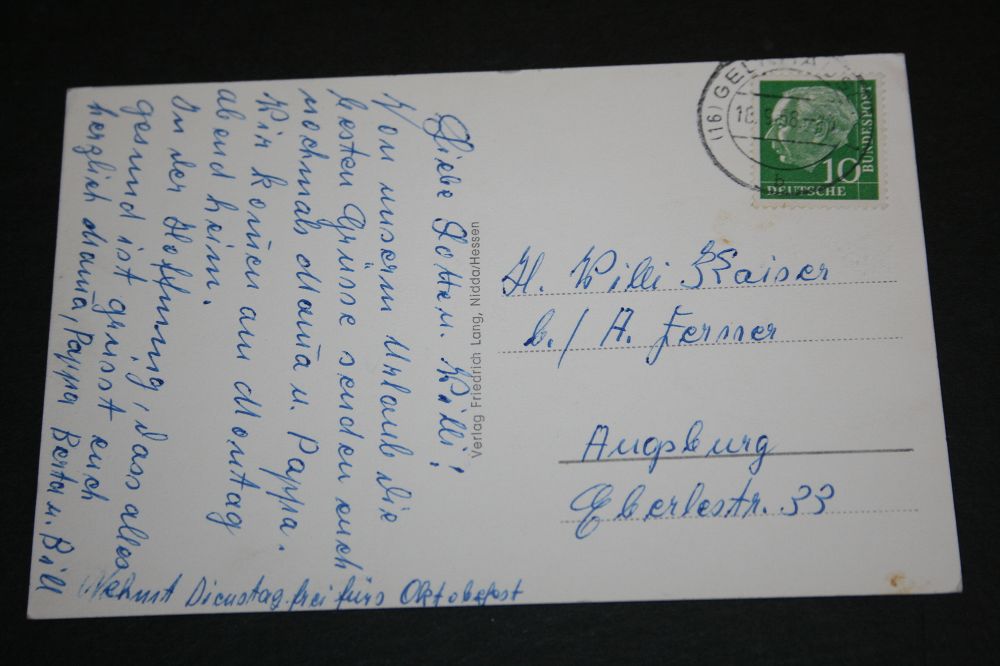 Liebe Lotte u. Willi!
Von unserm Urlaub die
besten Grüsse senden euch
nochmals Mama u. Pappa.
Wir komen am Montag
abend heim.
In der Hoffnung, dass alles
gesund ist grüsst euch
herzlich Mama, Pappa Berta u. Bill
Nehmt Dienstag frei fürs Oktobefest
Verlag Friedrich Lang, Nidda/Hessen
(16) GELNHAUSEN
18. 9. 58
b
10
DEUTSCHE
BUNDESPOST
H. Willi Kaiser
b./ A. Ferner
Augsburg
Eberlestr. 33